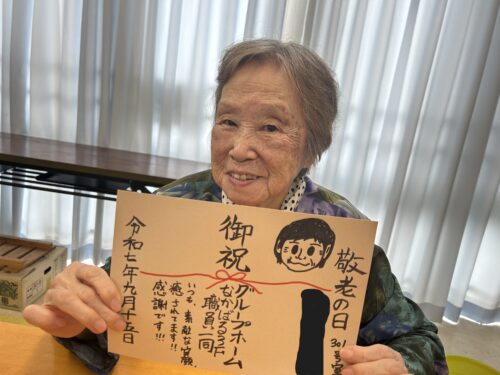 敬老の日
301号室
御祝
グループホーム
むかばる3F
職員一同
いつも、素敵な笑顔、
癒されてます!!
感謝です!!!
令和七年九月十五日